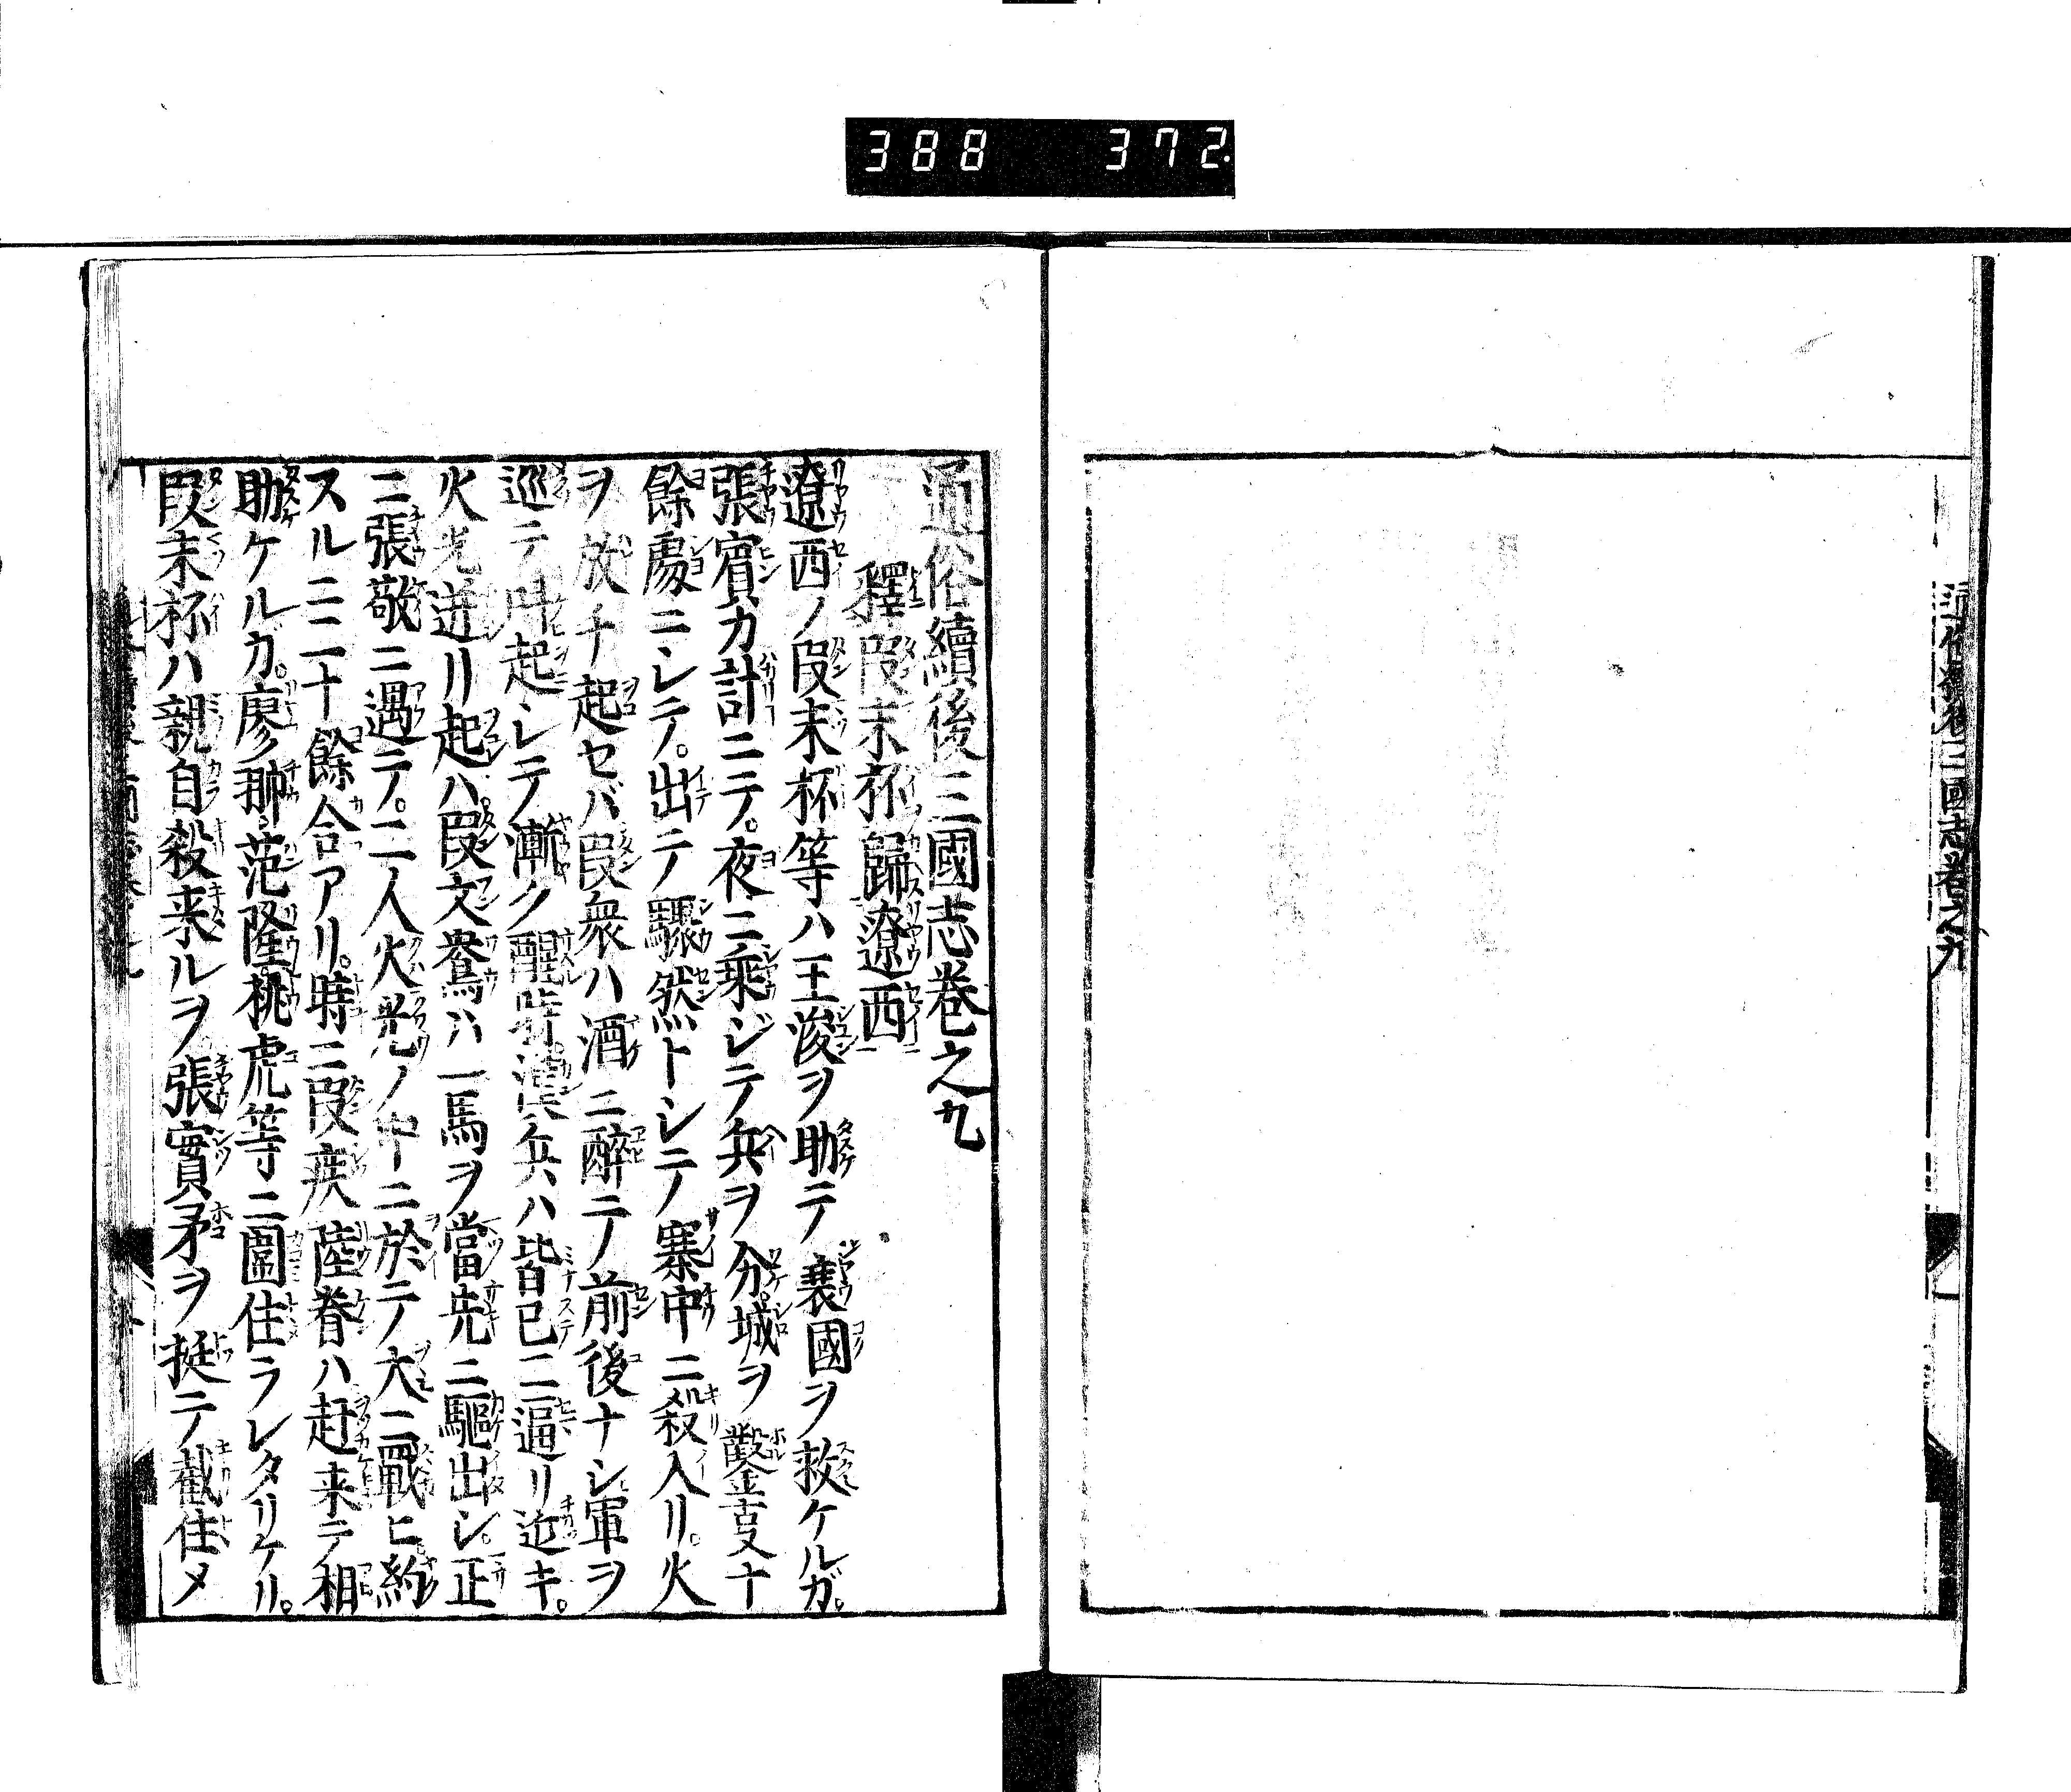 388 372
通俗續後三國志卷之九
通俗續後三國志卷之九
釋段末杯歸遼西
遼西ノ段末杯等ハ王浚ヲ助テ襄國ヲ救ケルガ。
張賓カ計ニテ。夜ニ乗ジテ兵ヲ分。城ヲ鑿夏十
餘處ニシテ。出テ驟然トシテ寨中ニ殺入リ。火
ヲ放チ起セバ段衆ハ酒ニ醉テ前後ナシ軍ヲ
巡テ叫起シテ漸ク醒時漢兵ハ皆已ニ逼リ近キ。
火光迸リ起ハ。段文鴦ハ一馬ヲ當先ニ驅出シ。正
ニ張敬ニ遇テ。二人火光ノ中ニ於テ大ニ戰ヒ。約
スルニ二十餘合アリ。時ニ段疾陸眷ハ赶来テ相
助ケルガ。廖翀范隆桃虎等ニ圍住ラレタリケリ。
段末杯ハ親自殺来ルヲ張實矛ヲ挺テ截住メ